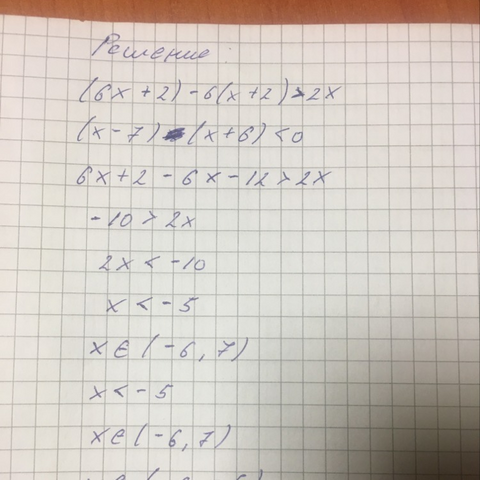 Решение
(6x + 2) - 6(x + 2) > 2x
(x - 7) (x + 6) < 0
6x + 2 - 6x - 12 > 2x
- 10 > 2x
2x < - 10
x < - 5
x ∈ (- 6, 7)
x < - 5
x ∈ (- 6, 7)